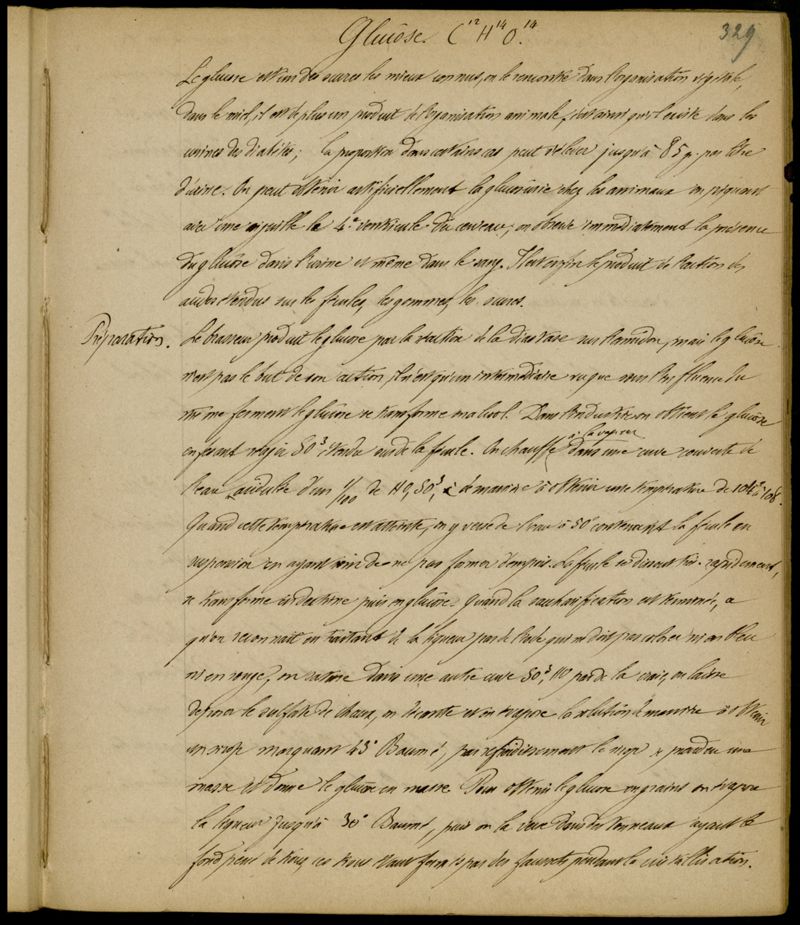 Glucose. C¹² H¹⁴ O.¹⁴
329
Le glucose est un des sucres les mieux connus, on le rencontre dans l'organisation végétale,
dans le miel, il est de plus un produit de l'organisation animale, c'est ainsi qu'il existe dans les
urines des diabètes; la proportion dans certains cas peut s'élever jusqu'à 85 g. par litre
d'urine. On peut obtenir artificiellement la glucosurie chez les animaux en piquant
avec une aiguille le 4e ventricule du cerveau; on observe immédiatement la présence
du glucose dans l'urine et même dans le sang. Il est enfin le produit de l'action des
acides étendus sur les fécules, les gommes, les sucres.
Préparation.
Le brasseur produit le glucose par la réaction de la diastase sur l'amidon, mais le glucose
n'est pas le but de son action, il n'est qu'un intermédiaire vu que sous l'influence du
même ferment le glucose se transforme en alcool. Dans l'industrie on obtient le glucose
en faisant réagir SO³ étendu sur de la fécule. On chauffe à la vapeur dans une cuve couverte de
l'eau acidulée d'un 1/100 de HO,SO³, de manière à obtenir une température de 104° à 108°.
Quand cette température est atteinte, on y verse de l'eau à 50° contenant la fécule en
suspension en ayant soin de ne pas former d'empois. La fécule se dissout très rapidement,
se transforme en dextrine puis en glucose. Quand la saccharification est terminée, ce
qu'on reconnait en traitant de la liqueur par de l'iode qui ne doit pas colorer ni en bleu
ni en rouge, on sature dans une autre cuve SO³,HO par de la craie, on laisse
déposer le sulfate de chaux, on décante et on évapore la solution de manière à obtenir
un sirop marquant 45° Baumé, par refroidissement le sirop se prend en une
masse et donne le glucose en masse. Pour obtenir le glucose en grains on évapore
la liqueur jusqu'à 30° Baumé, puis on la verse dans des tonneaux ayant le
fond percé de trous, ces trous étant fermés par des faussets pendant la cristallisation.